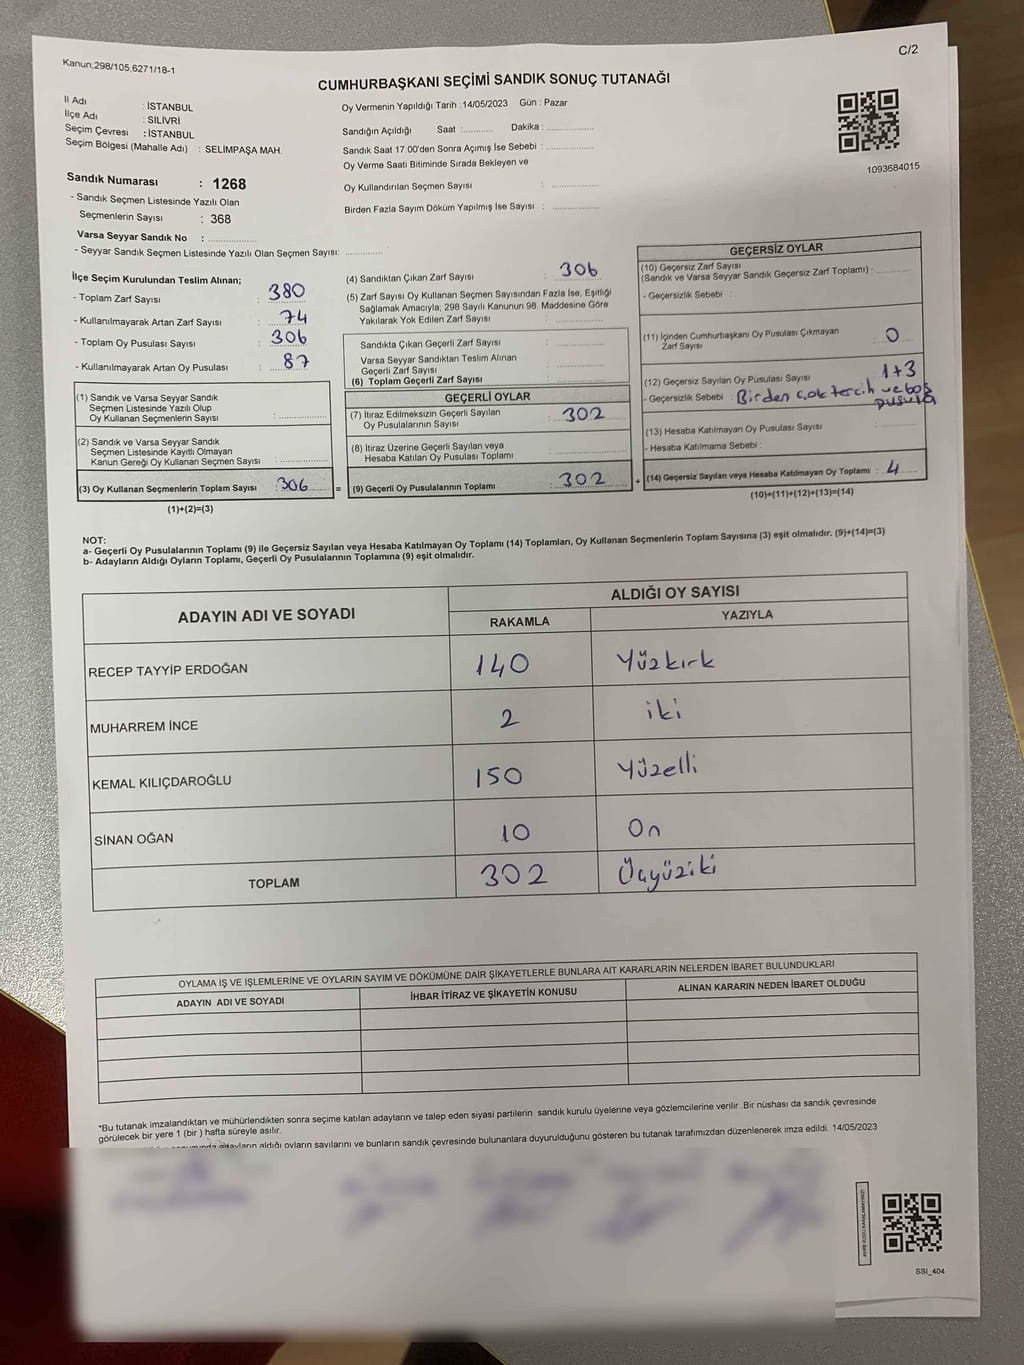 Kanun;298/105,6271/18-1
C/2
CUMHURBAŞKANI SEÇİMİ SANDIK SONUÇ TUTANAĞI
İl Adı : İSTANBUL
İlçe Adı : SİLİVRİ
Seçim Çevresi : İSTANBUL
Seçim Bölgesi (Mahalle Adı) : SELİMPAŞA MAH.
Sandık Numarası : 1268
- Sandık Seçmen Listesinde Yazılı Olan
Seçmenlerin Sayısı : 368
Varsa Seyyar Sandık No : ..............
- Seyyar Sandık Seçmen Listesinde Yazılı Olan Seçmen Sayısı: ............
Oy Vermenin Yapıldığı Tarih : 14/05/2023 Gün : Pazar
Sandığın Açıldığı Saat :........... Dakika : ................
Sandık Saat 17.00'den Sonra Açımış İse Sebebi : ................
Oy Verme Saati Bitiminde Sırada Bekleyen ve
Oy Kullandırılan Seçmen Sayısı : ................
Birden Fazla Sayım Döküm Yapılmış İse Sayısı : ................
1093684015
İlçe Seçim Kurulundan Teslim Alınan;
- Toplam Zarf Sayısı : 380
- Kullanılmayarak Artan Zarf Sayısı : 74
- Toplam Oy Pusulası Sayısı : 306
- Kullanılmayarak Artan Oy Pusulası : 87
(1) Sandık ve Varsa Seyyar Sandık
Seçmen Listesinde Yazılı Olup
Oy Kullanan Seçmenlerin Sayısı : ................
(2) Sandık ve Varsa Seyyar Sandık
Seçmen Listesinde Kayıtlı Olmayan
Kanun Gereği Oy Kullanan Seçmen Sayısı : ................
(3) Oy Kullanan Seçmenlerin Toplam Sayısı : 306
(1)+(2)=(3)
=
(4) Sandıktan Çıkan Zarf Sayısı : 306
(5) Zarf Sayısı Oy Kullanan Seçmen Sayısından Fazla İse, Eşitliği
Sağlamak Amacıyla; 298 Sayılı Kanunun 98. Maddesine Göre
Yakılarak Yok Edilen Zarf Sayısı : ................
Sandıkta Çıkan Geçerli Zarf Sayısı : ................
Varsa Seyyar Sandıktan Teslim Alınan
Geçerli Zarf Sayısı : ................
(6) Toplam Geçerli Zarf Sayısı : ................
GEÇERLİ OYLAR
(7) İtiraz Edilmeksizin Geçerli Sayılan
Oy Pusulasının Sayısı : 302
(8) İtiraz Üzerine Geçerli Sayılan veya
Hesaba Katılan Oy Pusulası Toplamı : ................
(9) Geçerli Oy Pusulalarının Toplamı : 302
+
GEÇERSİZ OYLAR
(10) Geçersiz Zarf Sayısı
(Sandık ve Varsa Seyyar Sandık Geçersiz Zarf Toplamı) : ............
- Geçersizlik Sebebi :
(11) İçinden Cumhurbaşkanı Oy Pusulası Çıkmayan
Zarf Sayısı : 0
(12) Geçersiz Sayılan Oy Pusulası Sayısı : 1+3
- Geçersizlik Sebebi : Birden çok tercih ve boş
pusula
(13) Hesaba Katılmayan Oy Pusulası Sayısı : ............
- Hesaba Katılmama Sebebi :
(14) Geçersiz Sayılan veya Hesaba Katılmayan Oy Toplamı : 4
(10)+(11)+(12)+(13)=(14)
NOT:
a- Geçerli Oy Pusulalarının Toplamı (9) ile Geçersiz Sayılan veya Hesaba Katılmayan Oy Toplamı (14) Toplamları, Oy Kullanan Seçmenlerin Toplam Sayısına (3) eşit olmalıdır. (9)+(14)=(3)
b- Adayların Aldığı Oyların Toplamı, Geçerli Oy Pusulalarının Toplamına (9) eşit olmalıdır.
ADAYIN ADI VE SOYADI ALDIĞI OY SAYISI
RAKAMLA YAZIYLA
RECEP TAYYİP ERDOĞAN 140 Yüzkırk
MUHARREM İNCE 2 iki
KEMAL KILIÇDAROĞLU 150 Yüzelli
SİNAN OĞAN 10 On
TOPLAM 302 Üçyüziki
OYLAMA İŞ VE İŞLEMLERİNE VE OYLARIN SAYIM VE DÖKÜMÜNE DAİR ŞİKAYETLERLE BUNLARA AİT KARARLARIN NELERDEN İBARET BULUNDUKLARI
ADAYIN ADI VE SOYADI İHBAR İTİRAZ VE ŞİKAYETİN KONUSU ALINAN KARARIN NEDEN İBARET OLDUĞU
*Bu tutanak imzalandıktan ve mühürlendikten sonra seçime katılan adayların ve talep eden siyasi partilerin sandık kurulu üyelerine veya gözlemcilerine verilir .Bir nüshası da sandık çevresinde
görülecek bir yere 1 (bir ) hafta süreyle asılır.
adayların aldığı oyların sayılarını ve bunların sandık çevresinde bulunanlara duyurulduğunu gösteren bu tutanak tarafımızdan düzenlenerek imza edildi. 14/05/2023
SSI_404